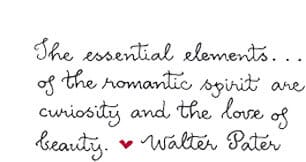 The essential elements...
of the romantic spirit are
curiosity and the love of
beauty. ♥ Walter Pater